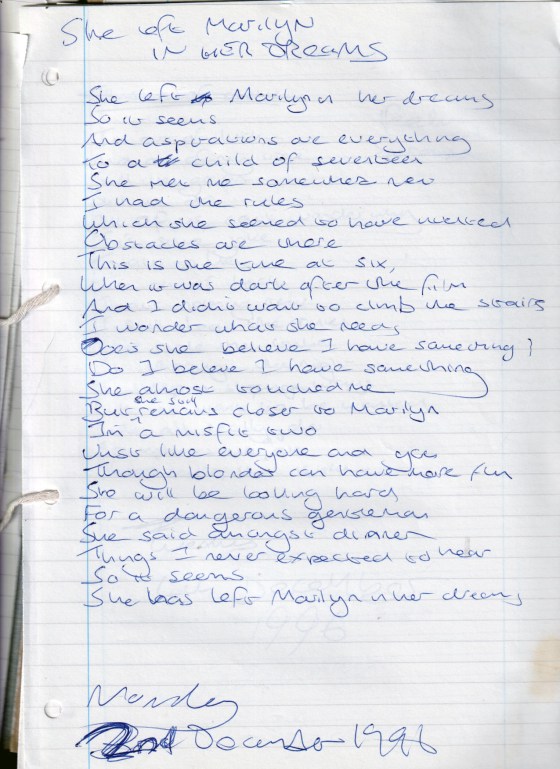 She left Marilyn
IN HER DREAMS
She left Marilyn in her dreams
So it seems
And aspirations are everything
To a child of seventeen
She met me somewhere new
I had the rules
Which she seemed to have wrecked
Obstacles are there
This is the time at six,
When it was dark after the film
And I didn't want to climb the stairs
I wonder what she needs
Does she believe I have something?
Do I believe I have something
She almost touched me
But she said remains closer to Marilyn
I'm a misfit two
Just like everyone and you
Though blondes can have more fun
She will be looking hard
For a dangerous gentleman
She said amongst dinner
Things I never expected to hear
So it seems
She has left Marilyn in her dreams
Monday
2nd December 1996